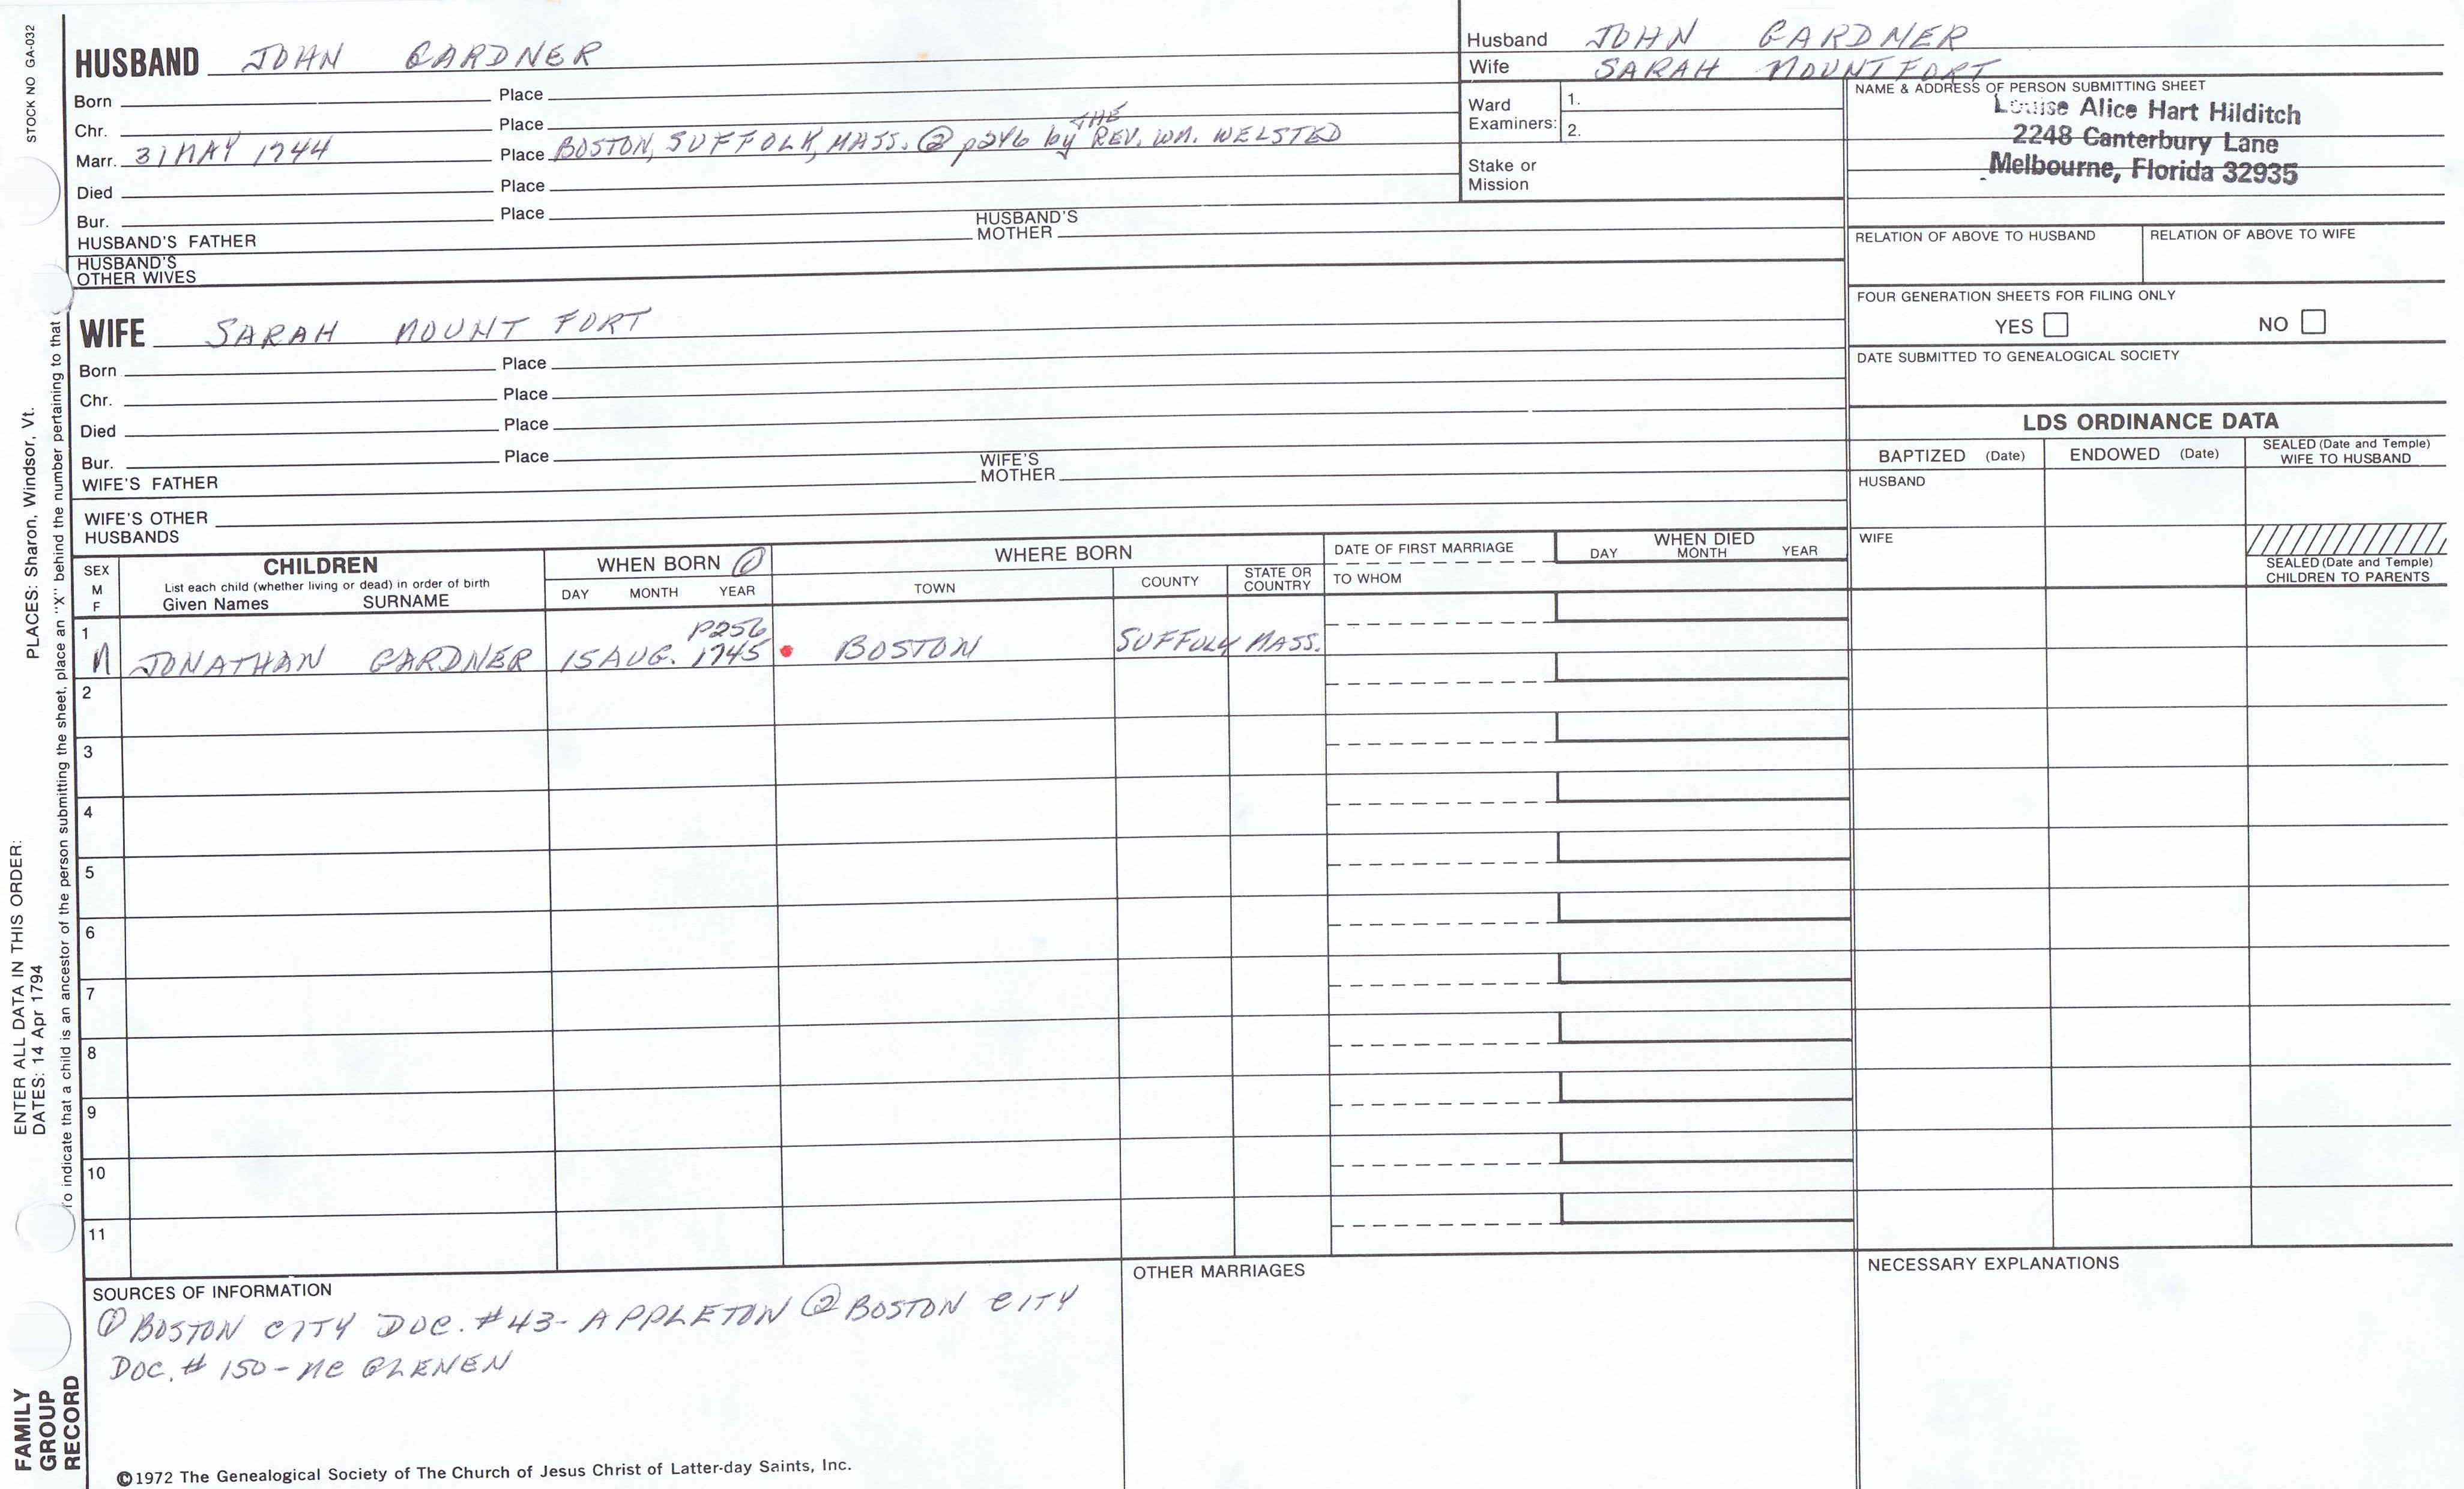 STOCK NO GA-032
HUSBAND JOHN GARDNER
Born Place
Chr. Place
Marr. 31 MAY 1744 Place BOSTON, SUFFOLK, MASS. ② p246 by THE REV. WM. WELSTED
Died Place
Bur. Place
HUSBAND'S FATHER HUSBAND'S MOTHER
HUSBAND'S OTHER WIVES
Husband JOHN GARDNER
Wife SARAH MOUNTFORT
Ward Examiners: 1.
2.
Stake or Mission
NAME & ADDRESS OF PERSON SUBMITTING SHEET
Louise Alice Hart Hilditch
2248 Canterbury Lane
Melbourne, Florida 32935
RELATION OF ABOVE TO HUSBAND RELATION OF ABOVE TO WIFE
FOUR GENERATION SHEETS FOR FILING ONLY
YES NO
DATE SUBMITTED TO GENEALOGICAL SOCIETY
WIFE SARAH MOUNT FORT
Born Place
Chr. Place
Died Place
Bur. Place
WIFE'S FATHER WIFE'S MOTHER
WIFE'S OTHER HUSBANDS
LDS ORDINANCE DATA
BAPTIZED (Date) ENDOWED (Date) SEALED (Date and Temple) WIFE TO HUSBAND
HUSBAND
WIFE
SEALED (Date and Temple) CHILDREN TO PARENTS
SEX M F
CHILDREN
List each child (whether living or dead) in order of birth
Given Names SURNAME
WHEN BORN ①
DAY MONTH YEAR
WHERE BORN
TOWN COUNTY STATE OR COUNTRY
DATE OF FIRST MARRIAGE
TO WHOM
WHEN DIED
DAY MONTH YEAR
1 P256
M JONATHAN GARDNER 15 AUG. 1745 BOSTON SUFFOLK MASS.
2
3
4
5
6
7
8
9
10
11
SOURCES OF INFORMATION
① BOSTON CITY DOC. #43- APPLETON ② BOSTON CITY
DOC. # 150- MC GLENEN
OTHER MARRIAGES
NECESSARY EXPLANATIONS
©1972 The Genealogical Society of The Church of Jesus Christ of Latter-day Saints, Inc.
ENTER ALL DATA IN THIS ORDER:
DATES: 14 Apr 1794
PLACES: Sharon, Windsor, Vt.
To indicate that a child is an ancestor of the person submitting the sheet, place an "X" behind the number pertaining to that
FAMILY
GROUP
RECORD